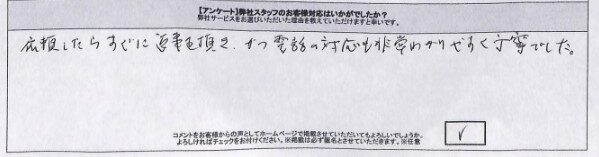 【アンケート】弊社スタッフのお客様対応はいかがでしたか?
弊社サービスをお選びいただいた理由を教えていただけますと幸いです。
依頼したらすぐに返事を頂き、かつ電話の対応も非常わかりやすく丁寧でした。
コメントをお客様からの声としてホームページで掲載させていただいてもよろしいでしょうか。
よろしければチェックをお付けください。※掲載は必ず匿名とさせていただきます。※任意